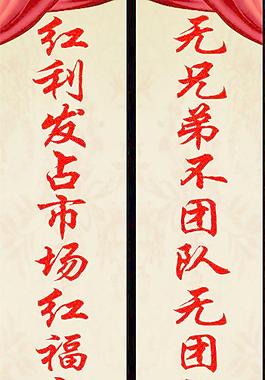 无兄弟不团队无团
红利发占市场红福